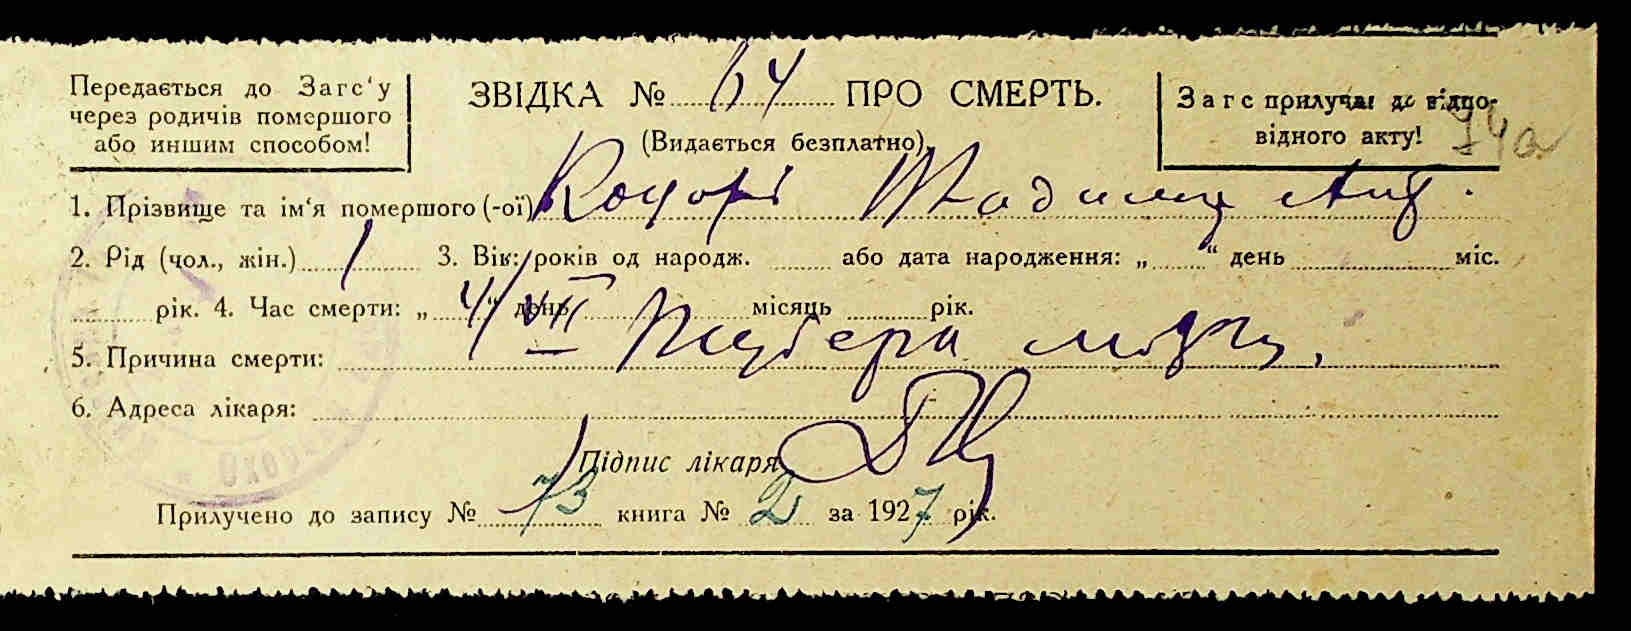 Передається до Загс'у
через родичів помершого
або иншим способом!
ЗВІДКА № 64 ПРО СМЕРТЬ.
(Видається безплатно).
Загс прилучає до відпо-
відного акту!
74а
1. Прізвище та ім'я помершого (-ої)
2. Рід (чол., жін.) 1 3. Вік: років од народж. або дата народження: „ “ день міс.
рік. 4. Час смерти: „ 4/VII “ день місяць рік.
5. Причина смерти: Тубера мозку.
6. Адреса лікаря:
Підпис лікаря
Прилучено до запису № 73 книга № 2 за 1927 рік.